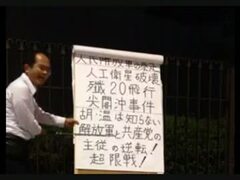 人民解放軍の暴走
人工衛星破壊
殲20飛行
尖閣沖事件
胡・温は知らない
解放軍と共産党の
主従の逆転!
超限戦!